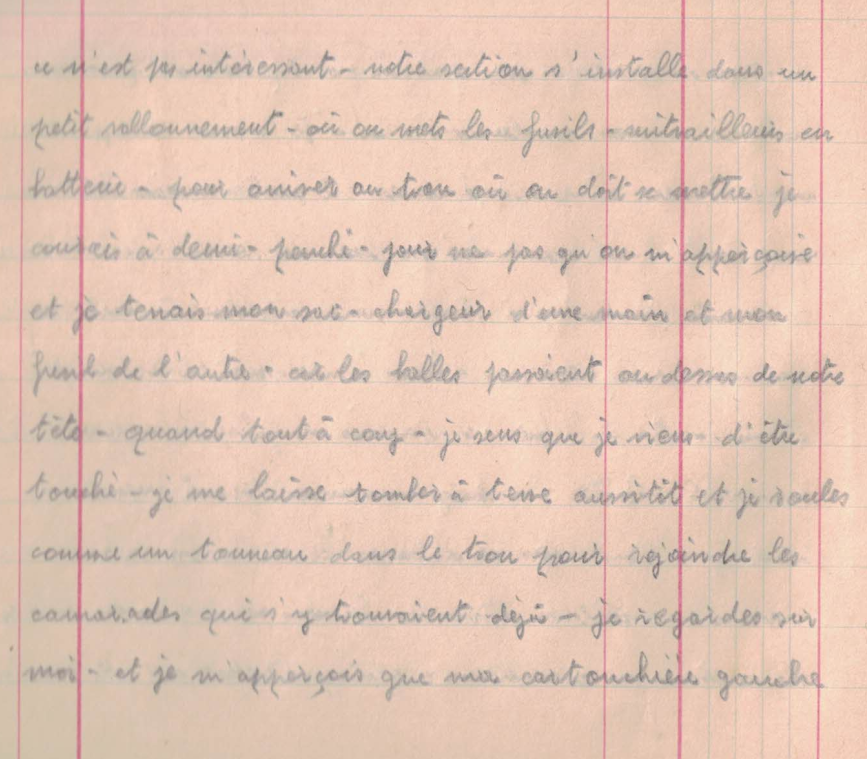 ce n'est pas intéressant - notre section s'installe dans un
petit vallonnement - où on mets les fusils - mitrailleurs en
batterie - pour arriver au trou où on doit se mettre je
courais à demi - penché - pour ne pas qu'on m'apperçoive
et je tenais mon sac - chargeur d'une main et mon
fusil de l'autre - car les balles passaient au dessus de notre
tête - quand tout à coup - je sens que je viens d'être
touché - je me laisse tomber à terre aussitôt et je roules
comme un tonneau dans le trou pour rejoindre les
camarades qui s'y trouvaient déjà - je regardes sur
moi - et je m'apperçois que ma cartouchière gauche